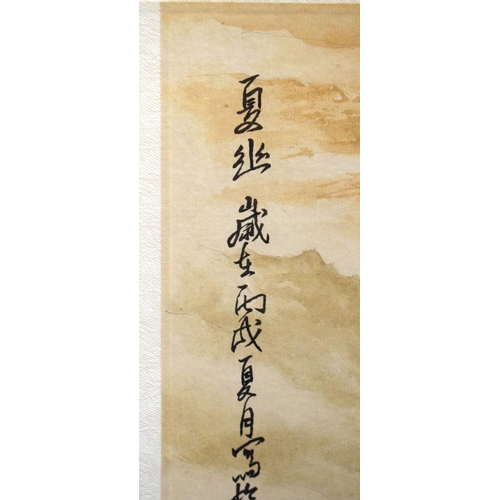 夏幽 歲在丙戌夏月寫於